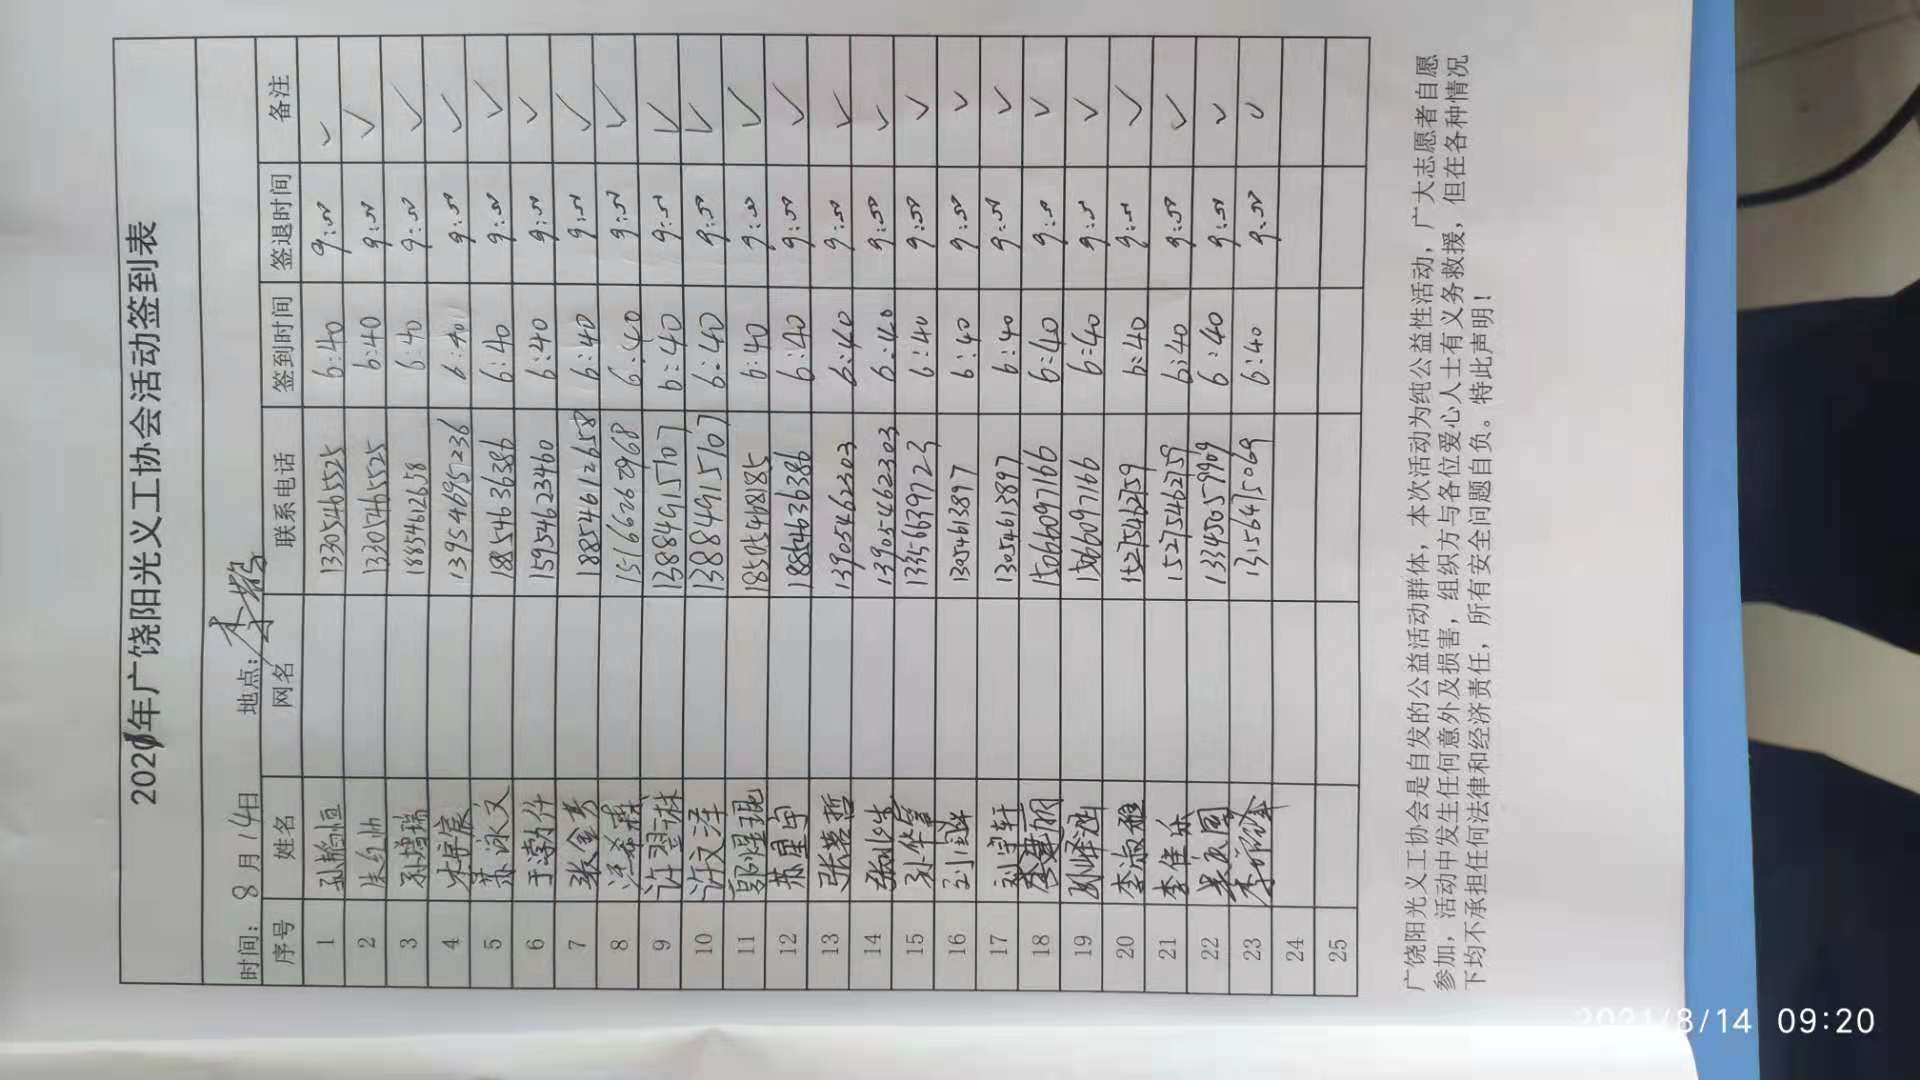 2021年广饶阳光义工协会活动签到表
时间: 8月14日 地点:
序号 姓名 网名 联系电话 签到时间 签退时间 备注
1 13305465525 6:40 9:50 ✓
2 13305465525 6:40 9:50 ✓
3 孙增瑞 18854612658 6:40 9:50 ✓
4 宋宇宸 13954695236 6:40 9:50 ✓
5 苏泳文 18854636386 6:40 9:50 ✓
6 于渤仟 15954623460 6:40 9:50 ✓
7 张金秀 18854612658 6:40 9:50 ✓
8 15166262968 6:40 9:50 ✓
9 许翌琳 13884915107 6:40 9:50 ✓
10 许文泽 13884915107 6:40 9:50 ✓
11 郭煜琨 18505468185 6:40 9:50 ✓
12 苏星宇 18854636386 6:40 9:50 ✓
13 张若哲 13905462303 6:40 9:50 ✓
14 13905462303 6:40 9:50 ✓
15 13356639723 6:40 9:50 ✓
16 13054613897 6:40 9:50 ✓
17 刘宇轩 13054613897 6:40 9:50 ✓
18 15666097166 6:40 9:50 ✓
19 6:40 9:50 ✓
20 李淑雅 15275462759 6:40 9:50 ✓
21 李佳乐 15275462759 6:40 9:50 ✓
22 13345059909 6:40 9:50 ✓
23 13156475069 6:40 9:50 ✓
24
25
广饶阳光义工协会是自发的公益活动群体，本次活动为纯公益性活动，广大志愿者自愿
参加，活动中发生任何意外及损害，组织方与各位爱心人士有义务救援，但在各种情况
下均不承担任何法律和经济责任，所有安全问题自负。特此声明！
2021/8/14 09:20